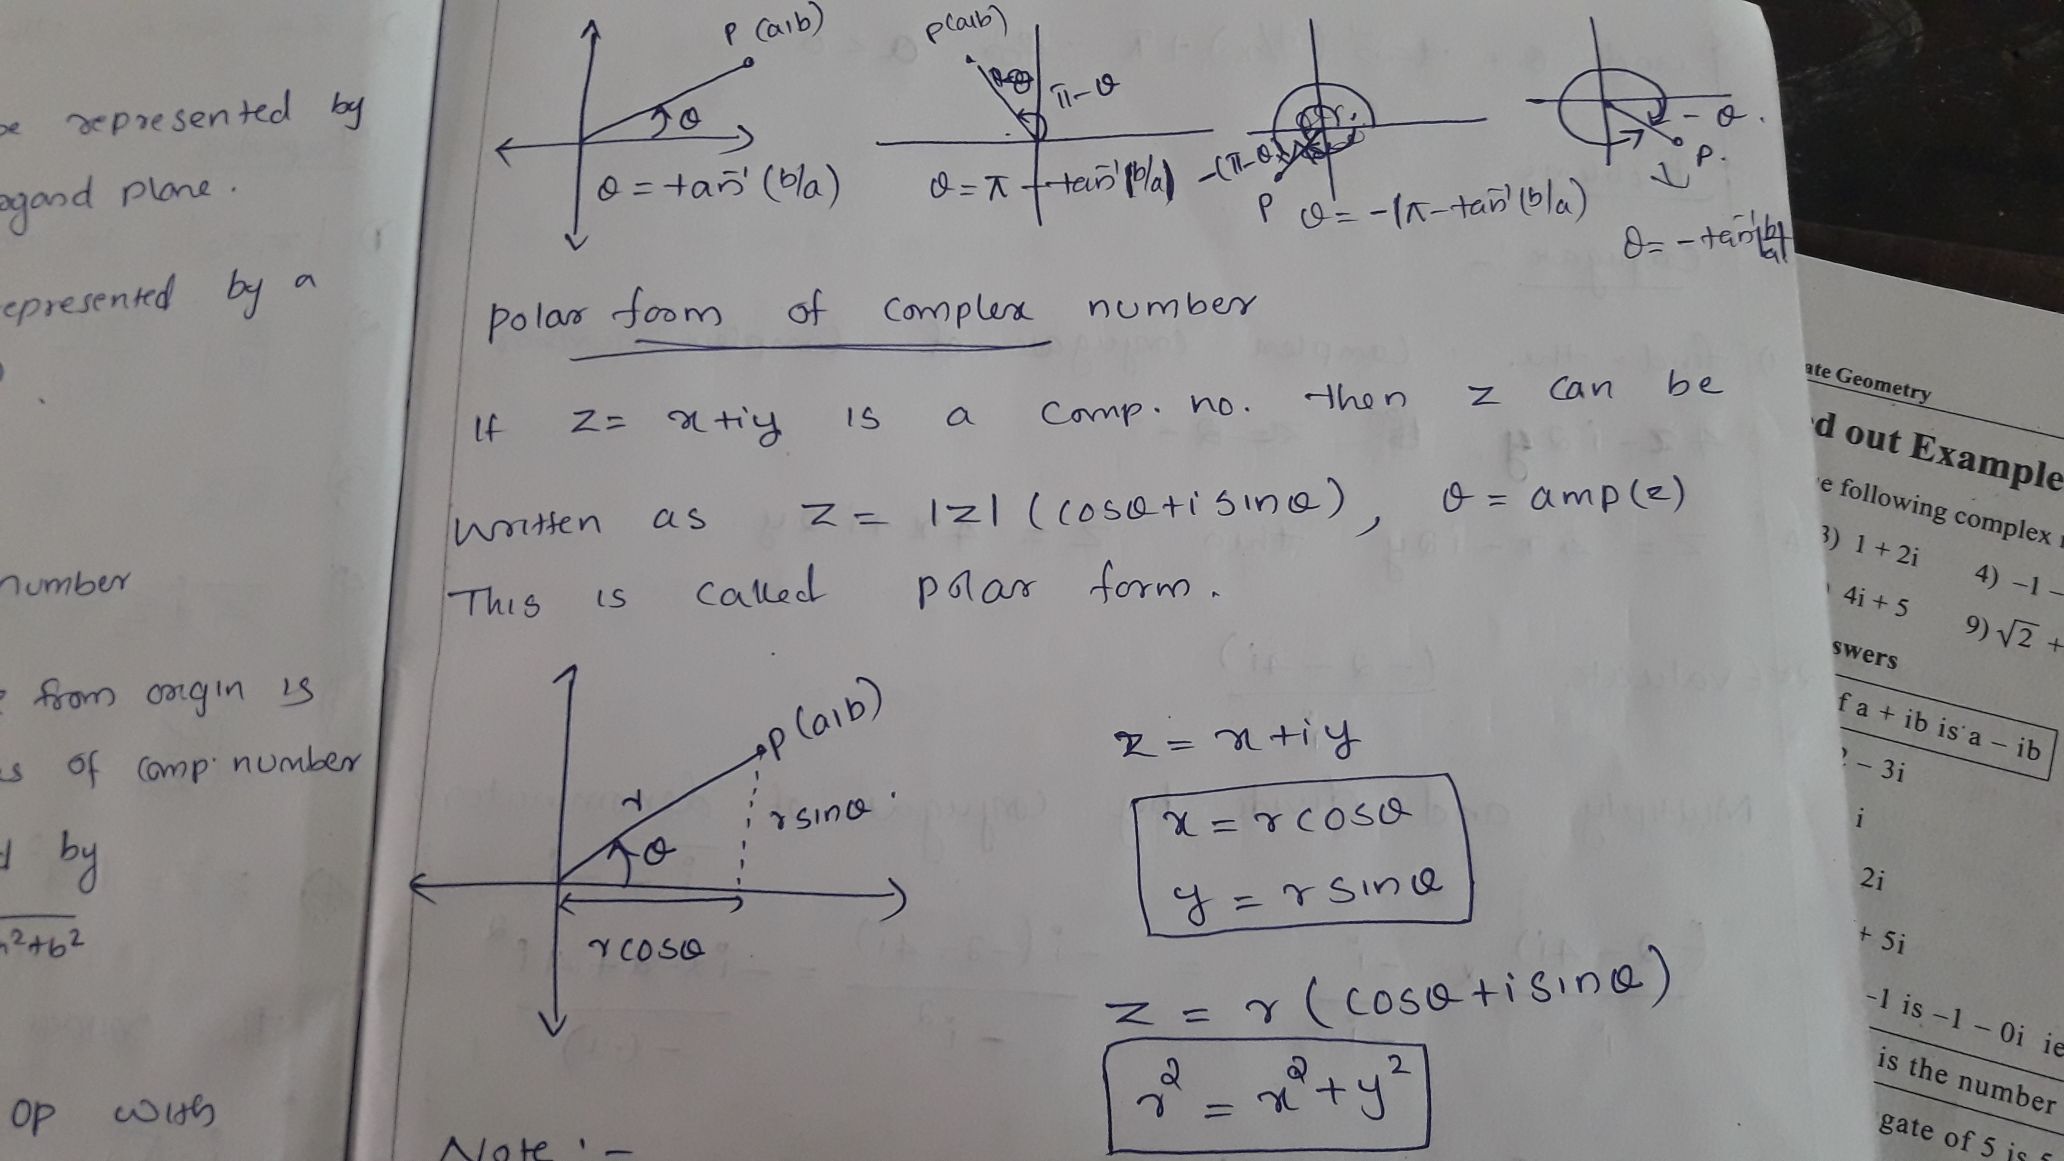 be represented by
agand plane.
represented by a
number
from origin is
of comp. number
by
a²+b²
OP with
P (a,b)
θ
θ = tan⁻¹ (b/a)
P(a,b)
π-θ
θ = π - tan⁻¹ (b/a)
-(π-θ)
P
θ = -(π-tan⁻¹ (b/a)
-θ.
P.
θ = -tan⁻¹ (b/a)
Polar form of complex number
If z = x+iy is a comp. no. then z can be
written as z = |z| (cosθ+i sinθ), θ = amp(z)
This is called polar form.
P(a,b)
r
θ
r sinθ
r cosθ
z = x+iy
x = r cosθ
y = r sinθ
z = r (cosθ+i sinθ)
r² = x²+y²
Note :-
ate Geometry
d out Example
e following complex
3) 1 + 2i 4) –1 –
4i + 5 9) √2 +
swers
f a + ib is a – ib
2 – 3i
i
2i
+ 5i
-1 is –1 – 0i ie
is the number
gate of 5 is 5